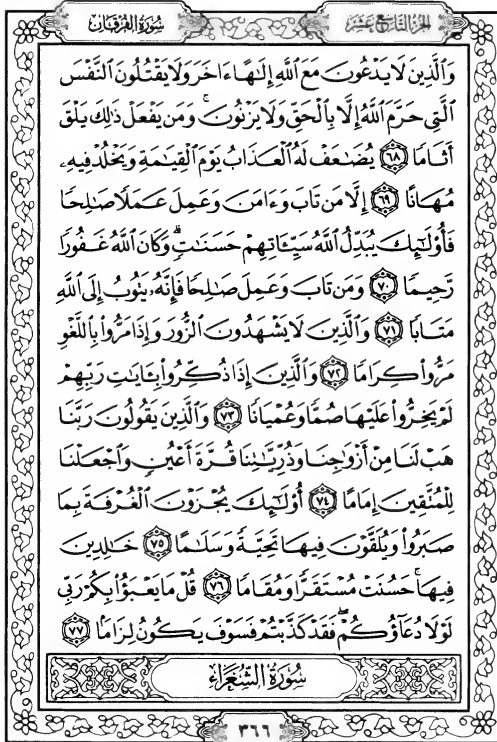 سُورَةُ الفُرْقَانِ
الجُزْءُ التَّاسِعَ عَشَرَ
وَٱلَّذِينَ لَا يَدْعُونَ مَعَ ٱللَّهِ إِلَٰهًا ءَاخَرَ وَلَا يَقْتُلُونَ ٱلنَّفْسَ
ٱلَّتِي حَرَّمَ ٱللَّهُ إِلَّا بِٱلْحَقِّ وَلَا يَزْنُونَ ۚ وَمَن يَفْعَلْ ذَٰلِكَ يَلْقَ
أَثَامًا ٦٨ يُضَٰعَفْ لَهُ ٱلْعَذَابُ يَوْمَ ٱلْقِيَٰمَةِ وَيَخْلُدْ فِيهِۦ
مُهَانًا ٦٩ إِلَّا مَن تَابَ وَءَامَنَ وَعَمِلَ عَمَلًا صَٰلِحًا
فَأُوْلَٰٓئِكَ يُبَدِّلُ ٱللَّهُ سَيِّـَٔاتِهِمْ حَسَنَٰتٍ ۗ وَكَانَ ٱللَّهُ غَفُورًا
رَّحِيمًا ٧٠ وَمَن تَابَ وَعَمِلَ صَٰلِحًا فَإِنَّهُۥ يَتُوبُ إِلَى ٱللَّهِ
مَتَابًا ٧١ وَٱلَّذِينَ لَا يَشْهَدُونَ ٱلزُّورَ وَإِذَا مَرُّوا۟ بِٱللَّغْوِ
مَرُّوا۟ كِرَامًا ٧٢ وَٱلَّذِينَ إِذَا ذُكِّرُوا۟ بِـَٔايَٰتِ رَبِّهِمْ
لَمْ يَخِرُّوا۟ عَلَيْهَا صُمًّا وَعُمْيَانًا ٧٣ وَٱلَّذِينَ يَقُولُونَ رَبَّنَا
هَبْ لَنَا مِنْ أَزْوَٰجِنَا وَذُرِّيَّٰتِنَا قُرَّةَ أَعْيُنٍ وَٱجْعَلْنَا
لِلْمُتَّقِينَ إِمَامًا ٧٤ أُوْلَٰٓئِكَ يُجْزَوْنَ ٱلْغُرْفَةَ بِمَا
صَبَرُوا۟ وَيُلَقَّوْنَ فِيهَا تَحِيَّةً وَسَلَٰمًا ٧٥ خَٰلِدِينَ
فِيهَا ۚ حَسُنَتْ مُسْتَقَرًّا وَمُقَامًا ٧٦ قُلْ مَا يَعْبَؤُا۟ بِكُمْ رَبِّي
لَوْلَا دُعَآؤُكُمْ ۖ فَقَدْ كَذَّبْتُمْ فَسَوْفَ يَكُونُ لِزَامًا ٧٧
سُورَةُ الشُّعَرَاءِ
٣٦٦